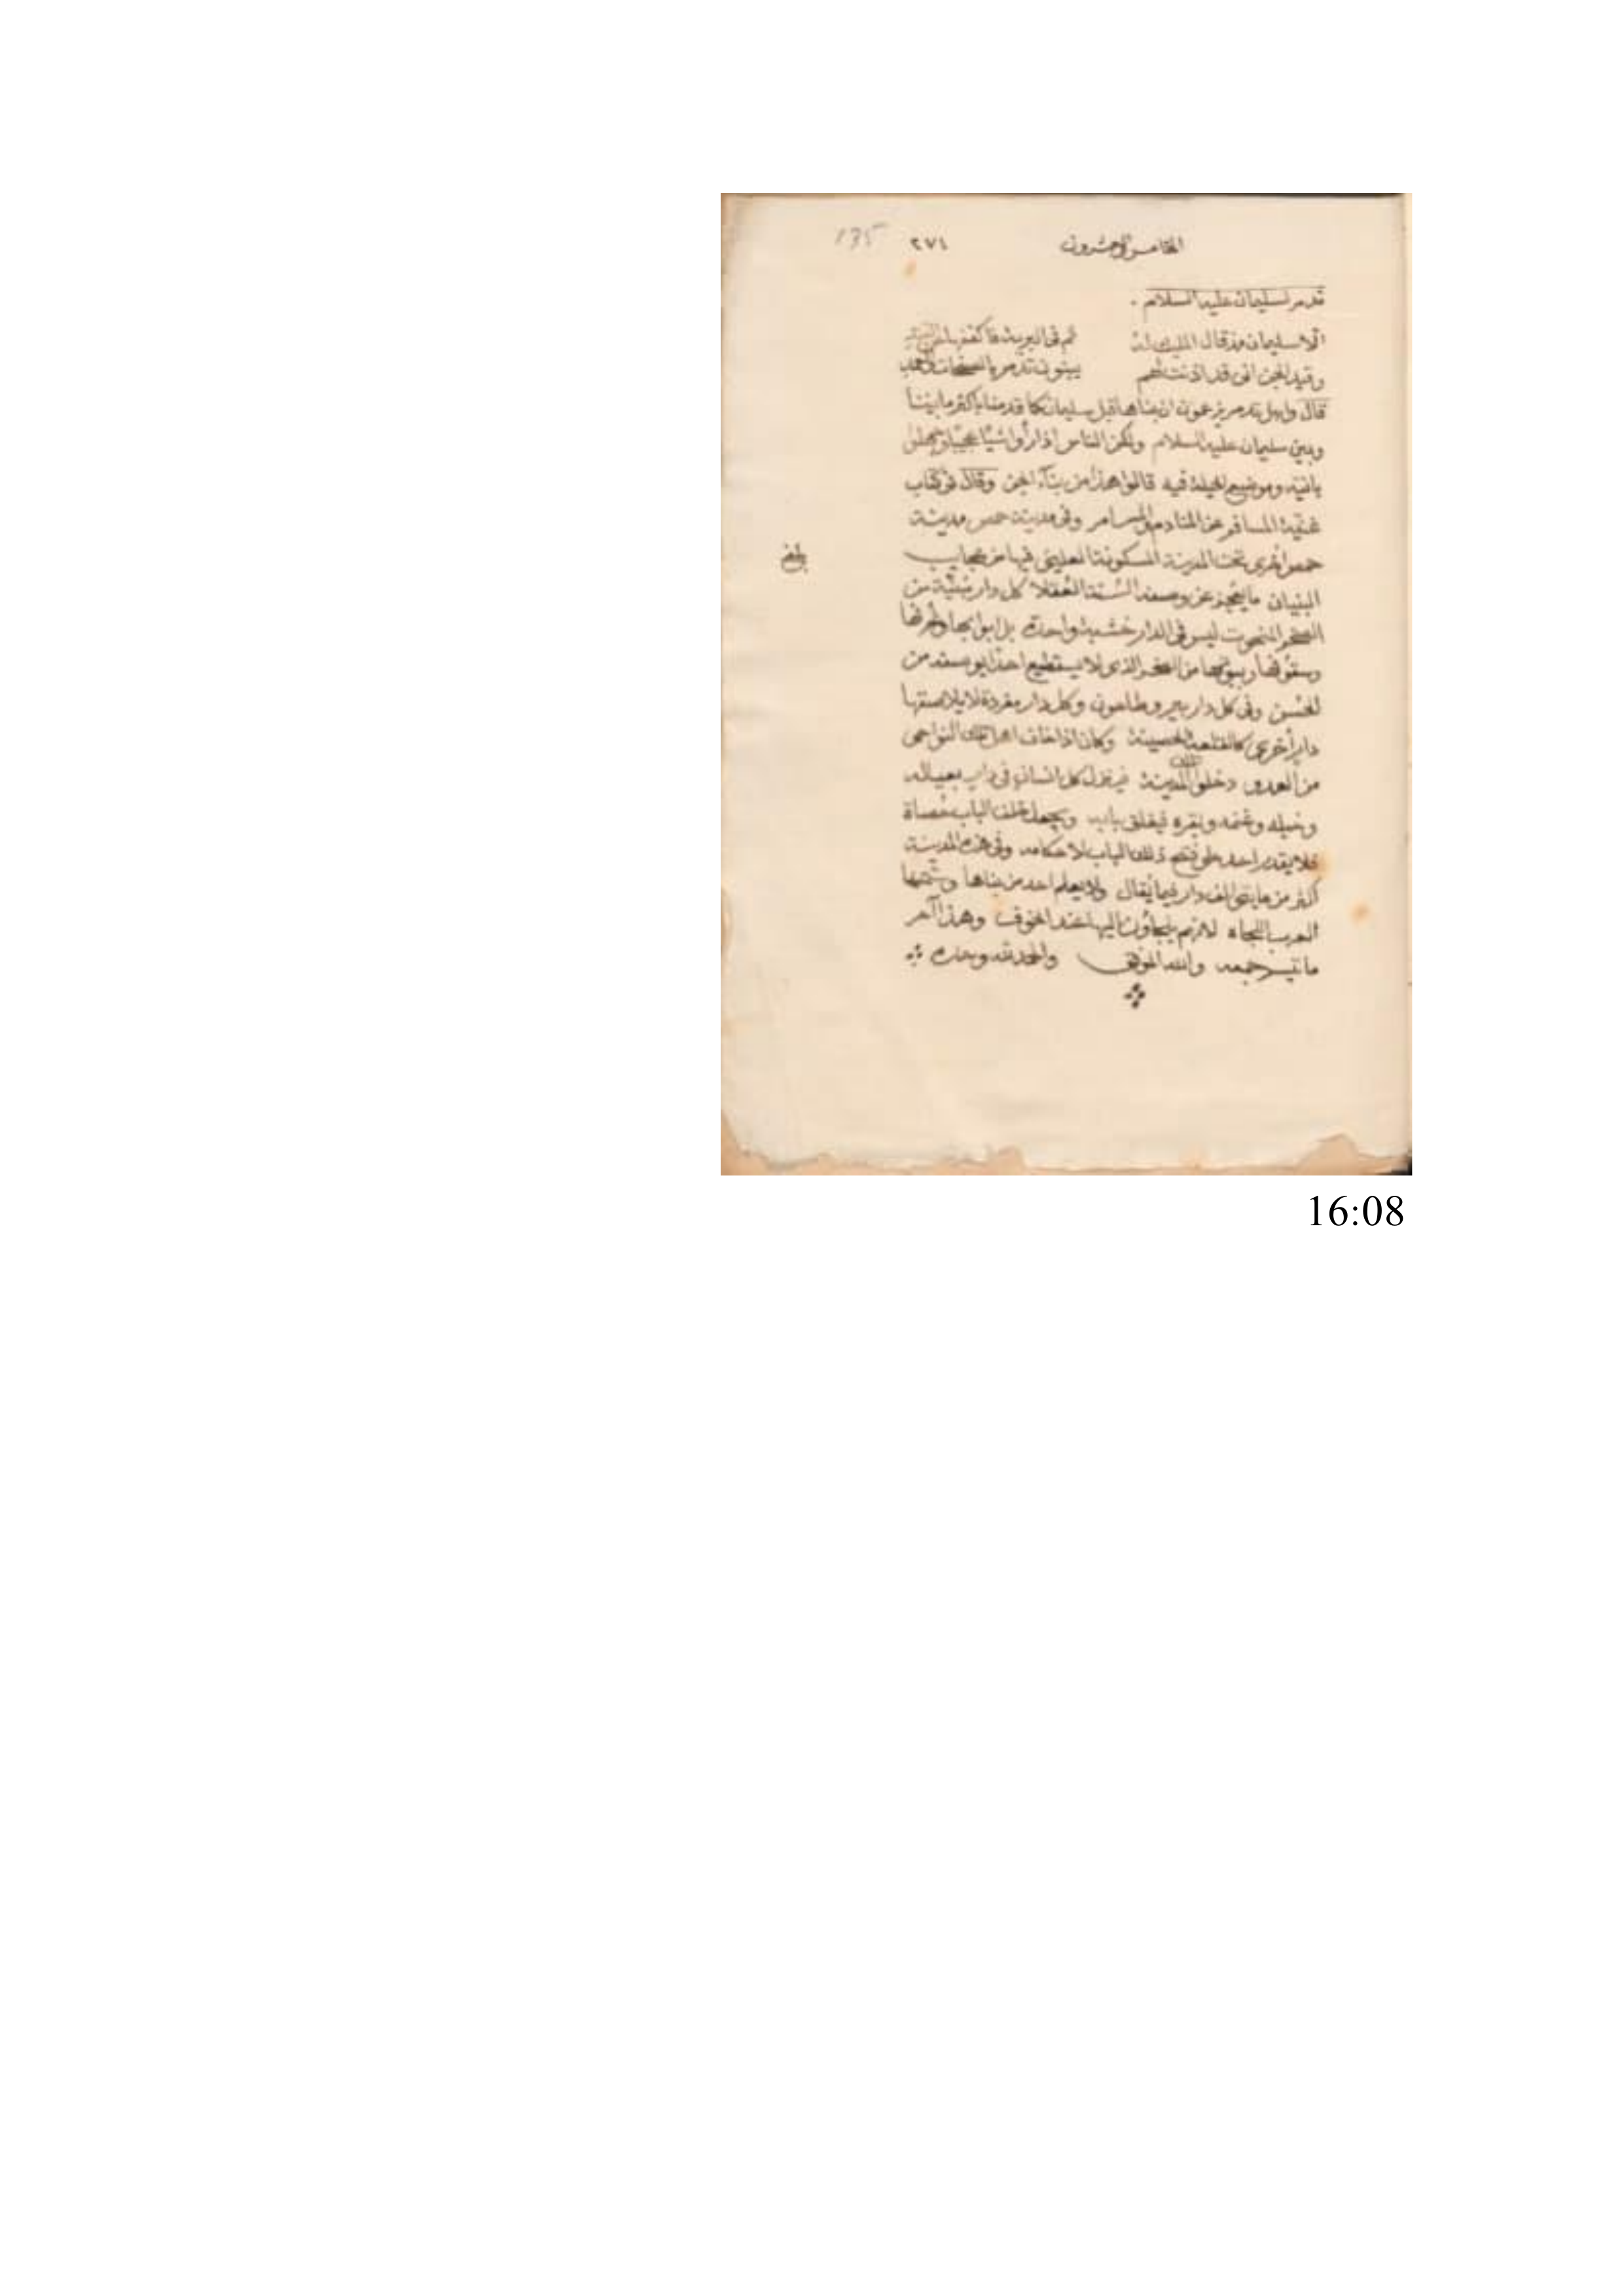 الخامس والعشرون ٢٧١ 135
تدمر لسليمان عليه السلام .
الا سليمان مذ قال المليك له قم في البرية فاكففها عن
وقيد الجن انى قد اذنت لهم يبنون تدمر بالصفحات والعمد
قال واهل تدمر يزعمون ان بناها قبل سليمان كما قدمنا باكثر مابيننا
وبين سليمان عليه السلام ولكن الناس اذا رأوا شيًا عجيبًا وجهلوا
بانيه وموضع الحيلة فيه قالوا هذا من بناء الجن وقال في كتاب
غنية المسافر عن المنادم والمسامر وفي مدينة حمص مدينة
حمص اخرى تحت المدينة المسكونة العليى فيها من عجايب
البنيان ما يعجز عن وصفه السنة العقلا كل دار مبنية من
الصخر المنحوت ليس في الدار خشبة واحدة بل ابوابها وغرفها
وسقوفها وبيوتها من الصخر الذى لا يستطيع احدا يوصفه من
الحسن وفي كل دار بير وطاحون وكل دار مفردة لا يلاصقها
دار أخرى كالقلعة الحصينة وكان اذا خاف اهل تلك النواحى
من العدو دخلوا تلك المدينة فينزل كل انسان في دار بعياله
وخيله وغنمه وبقره فيغلق بابه ويجعل خلف الباب حصاة
فلا يقدر احد على فتح ذلك الباب لاحكامه وفي هذه المدينة
اكثر من مايتى الف دار فيما يقال ولا يعلم احد من بناها وسمتها
العرب اللجاه لانهم يلجأون اليها عند الخوف وهذا آخر
ما تيسر جمعه والله الموفق والحمد لله وحده
بلغ
16:08